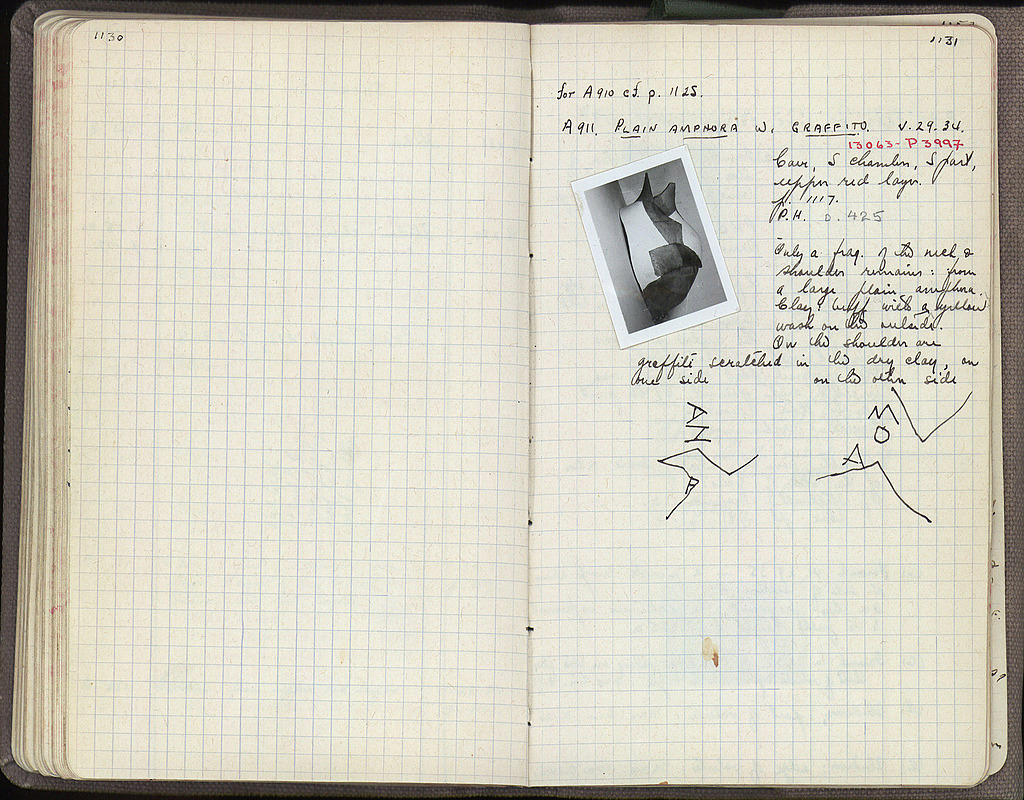 1130
1131
for A 910 cf. p. 1125.
A 911. PLAIN AMPHORA W. GRAFFITO. V. 29. 34.
13063 - P 3997
Cave, S chamber, S part,
upper red layer.
p. 1117.
P.H. 0.425
Only a frag. of the neck &
shoulder remains: from
a large plain amphora.
Clay: buff with a yellow
wash on the outside.
On the shoulder are
graffiti scratched in the dry clay, on
one side on the other side
AN
A
M
O
A